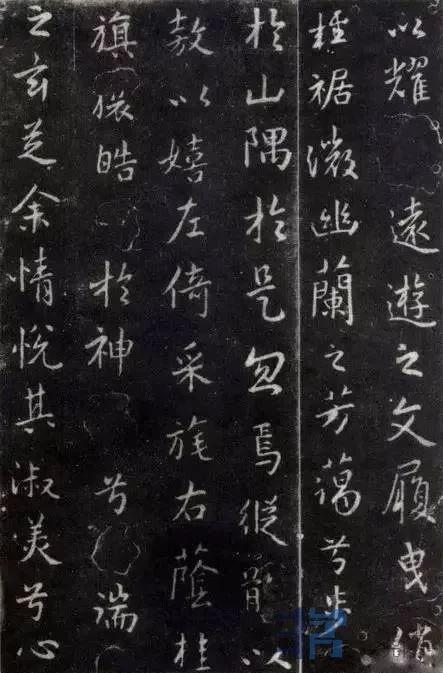 以耀遠遊之文履曳綃
輕裾微幽蘭之芳藹兮步
於山隅於是忽焉縱體以
敖以嬉左倚采旄右蔭桂
旗攘皓於神兮湍
之玄芝余情悅其淑美兮心